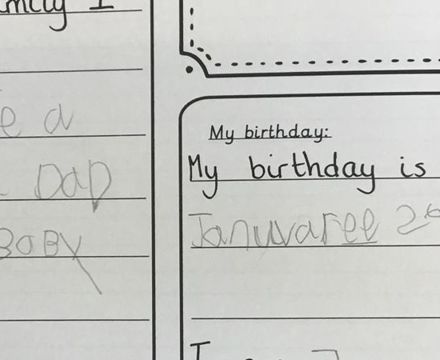 mily I
e a
DaD
BOBY
My birthday:
My birthday is
Januvaree 2
I